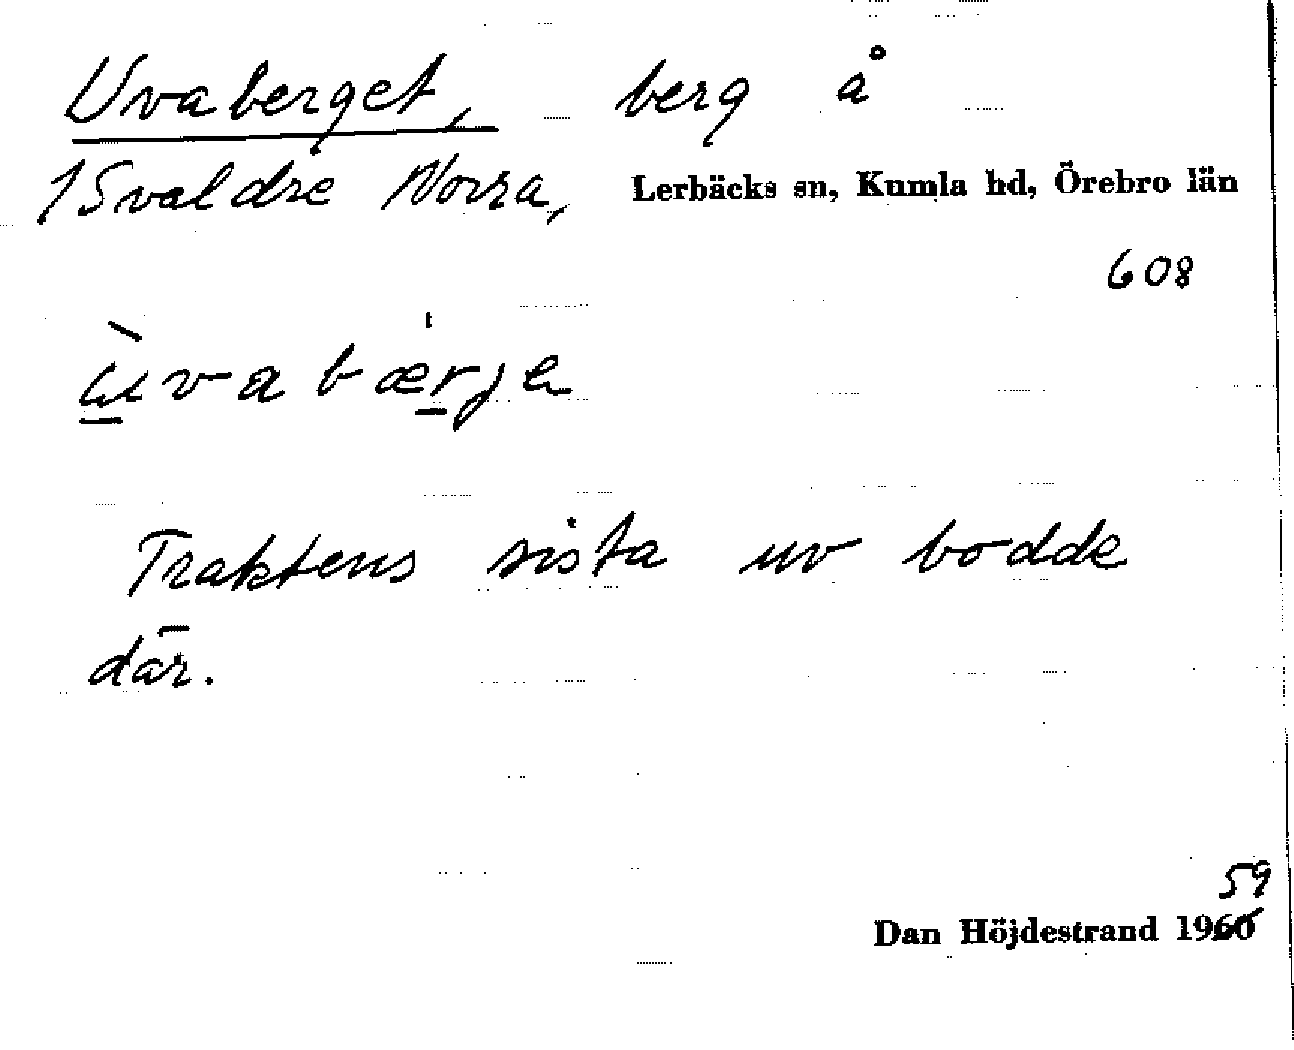 Uvaberget, berg å
1 Svaldre Norra, Lerbäcks sn, Kumla hd, Örebro län
608
ùvabær̲je
Traktens sista uv bodde
där.
59
Dan Höjdestrand 1960